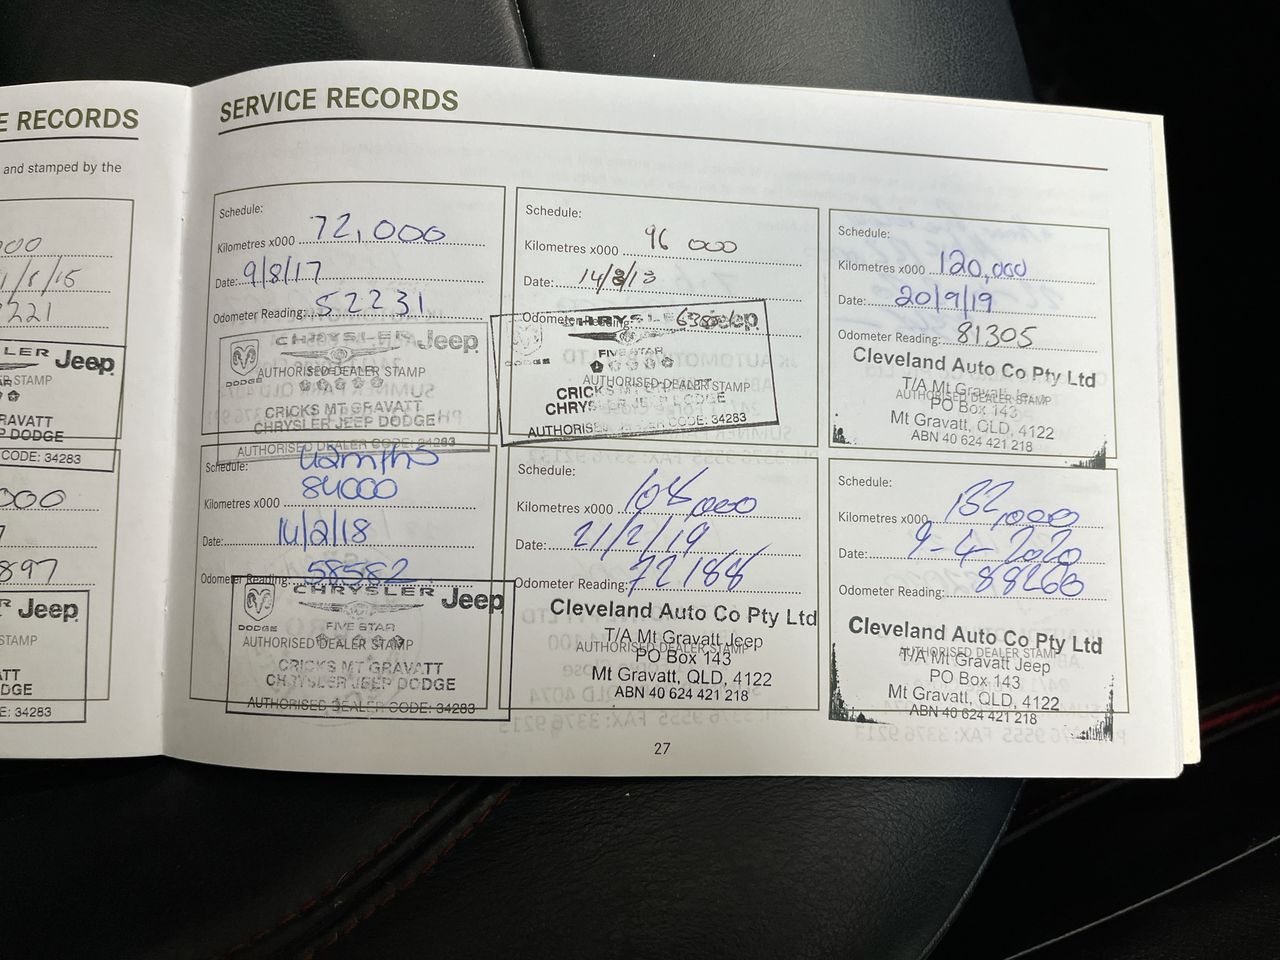 E RECORDS
and stamped by the
00
1/8/15
221
LER Jeep
STAMP
RAVATT
P DODGE
CODE: 34283
000
7
897
R Jeep
STAMP
ATT
DGE
E: 34283
SERVICE RECORDS
Schedule:
Kilometres x000 72,000
Date: 9/8/17
Odometer Reading: 52231
CHRYSLER Jeep
DODGE
AUTHORISED DEALER STAMP
CRICKS MT GRAVATT
CHRYSLER JEEP DODGE
AUTHORISED DEALER CODE: 34283
Schedule:
Kilometres x000 96 000
Date:
Odometer Reading:
CHRYSLER Jeep
DODGE
FIVE STAR
AUTHORISED DEALER STAMP
CRICKS MT GRAVATT
CHRYSLER JEEP DODGE
AUTHORISED DEALER CODE: 34283
Schedule:
Kilometres x000 120,000
Date: 20/9/19
Odometer Reading: 81305
Cleveland Auto Co Pty Ltd
T/A Mt Gravatt Jeep
AUTHORISED DEALER STAMP
PO Box 143
Mt Gravatt, QLD, 4122
ABN 40 624 421 218
Schedule:
Kilometres x000 84000
Date: 14/2/18
Odometer Reading: 58582
CHRYSLER Jeep
DODGE
FIVE STAR
AUTHORISED DEALER STAMP
CRICKS MT GRAVATT
CHRYSLER JEEP DODGE
AUTHORISED DEALER CODE: 34283
Schedule:
Kilometres x000 108,000
Date: 21/2/19
Odometer Reading: 72188
Cleveland Auto Co Pty Ltd
T/A Mt Gravatt Jeep
AUTHORISED DEALER STAMP
PO Box 143
Mt Gravatt, QLD, 4122
ABN 40 624 421 218
Schedule:
Kilometres x000 132,000
Date: 9-4-2020
Odometer Reading: 88260
Cleveland Auto Co Pty Ltd
AUTHORISED DEALER STAMP
T/A Mt Gravatt Jeep
PO Box 143
Mt Gravatt, QLD, 4122
ABN 40 624 421 218
27